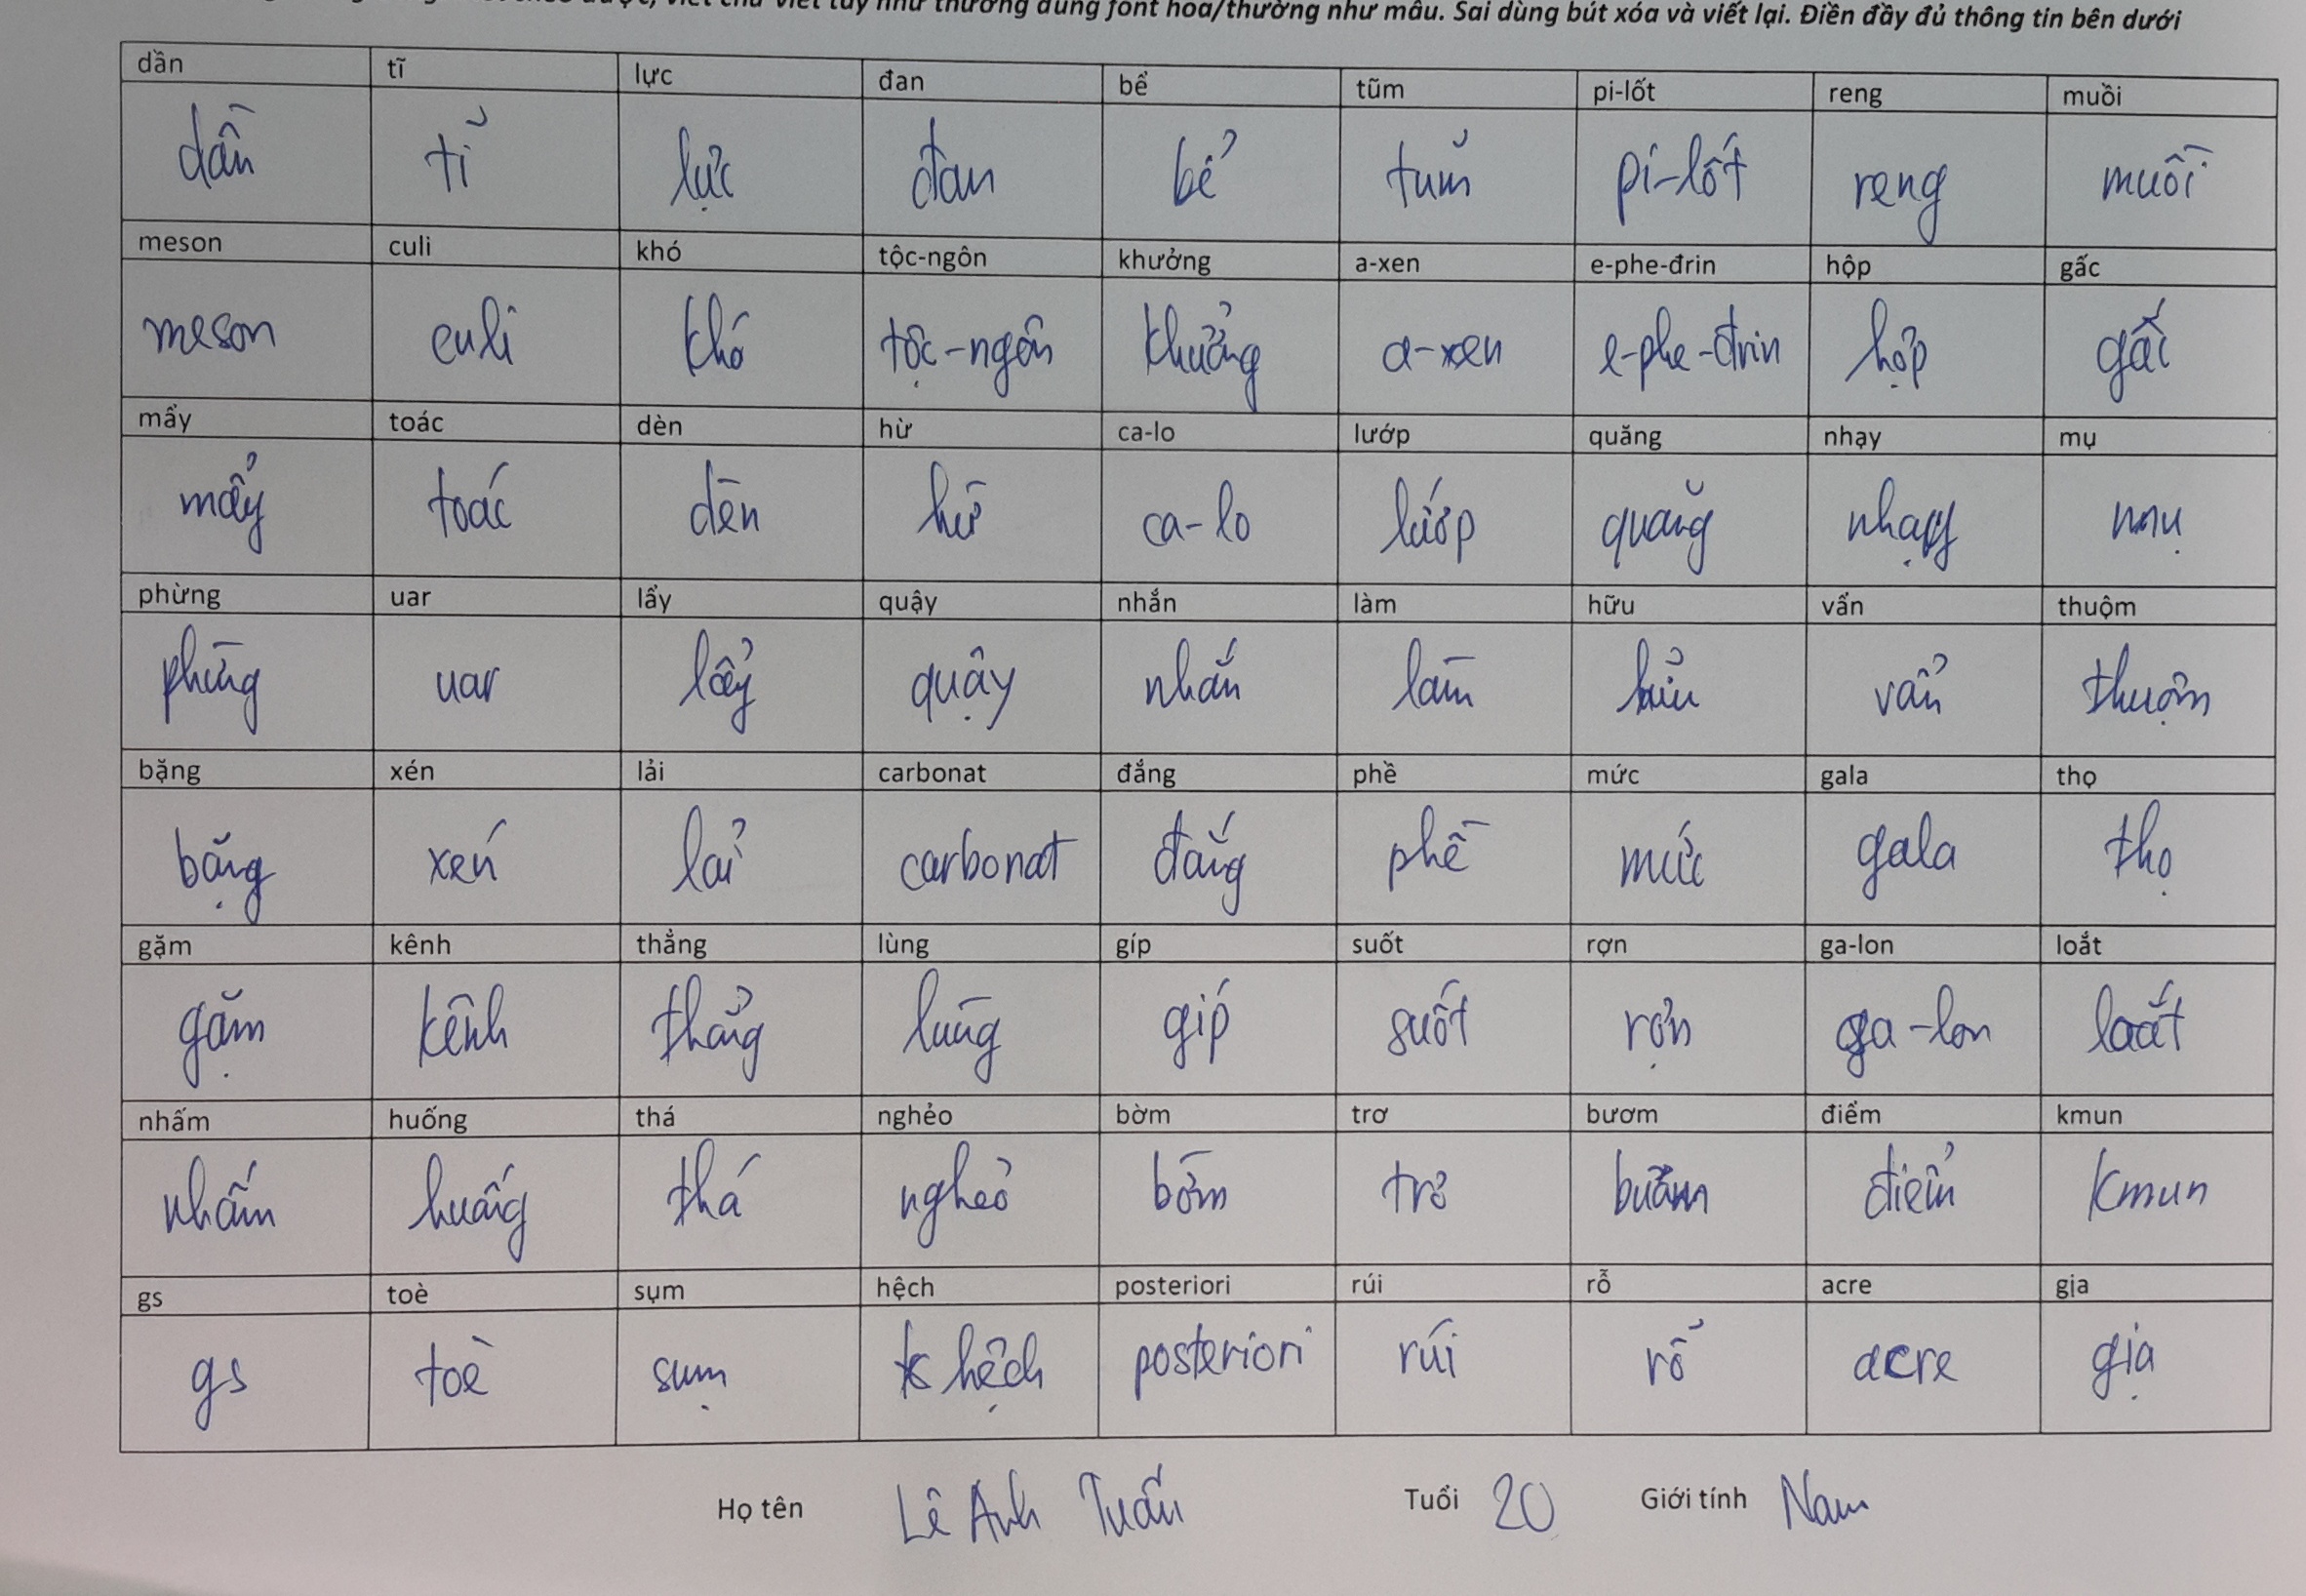 viết chữ viết tay như thường dùng font hoa/thường như mẫu. Sai dùng bút xóa và viết lại. Điền đầy đủ thông tin bên dưới
dần tĩ lực đan bể tũm pi-lốt reng muồi
dần tĩ lực đan bể tũm pi-lốt reng muồi
meson culi khó tộc-ngôn khưởng a-xen e-phe-đrin hộp gấc
meson culi khó tộc-ngôn khưởng a-xen e-phe-đrin hộp gấc
mẩy toác dèn hừ ca-lo lướp quăng nhạy mụ
mẩy toác dèn hừ ca-lo lướp quăng nhạy mụ
phừng uar lẩy quậy nhắn làm hữu vẩn thuộm
phừng uar lẩy quậy nhắn làm hữu vẩn thuộm
bặng xén lải carbonat đắng phề mức gala thọ
bặng xén lải carbonat đắng phề mức gala thọ
gặm kênh thẳng lùng gíp suốt rợn ga-lon loắt
gặm kênh thẳng lùng gíp suốt rợn ga-lon loắt
nhấm huống thá nghẻo bờm trơ bươm điểm kmun
nhấm huống thá nghẻo bờm trơ bươm điểm kmun
gs toè sụm hệch posteriori rúi rỗ acre gịa
gs toè sụm hệch posteriori rúi rỗ acre gịa
Họ tên Lê Anh Tuấn Tuổi 20 Giới tính Nam